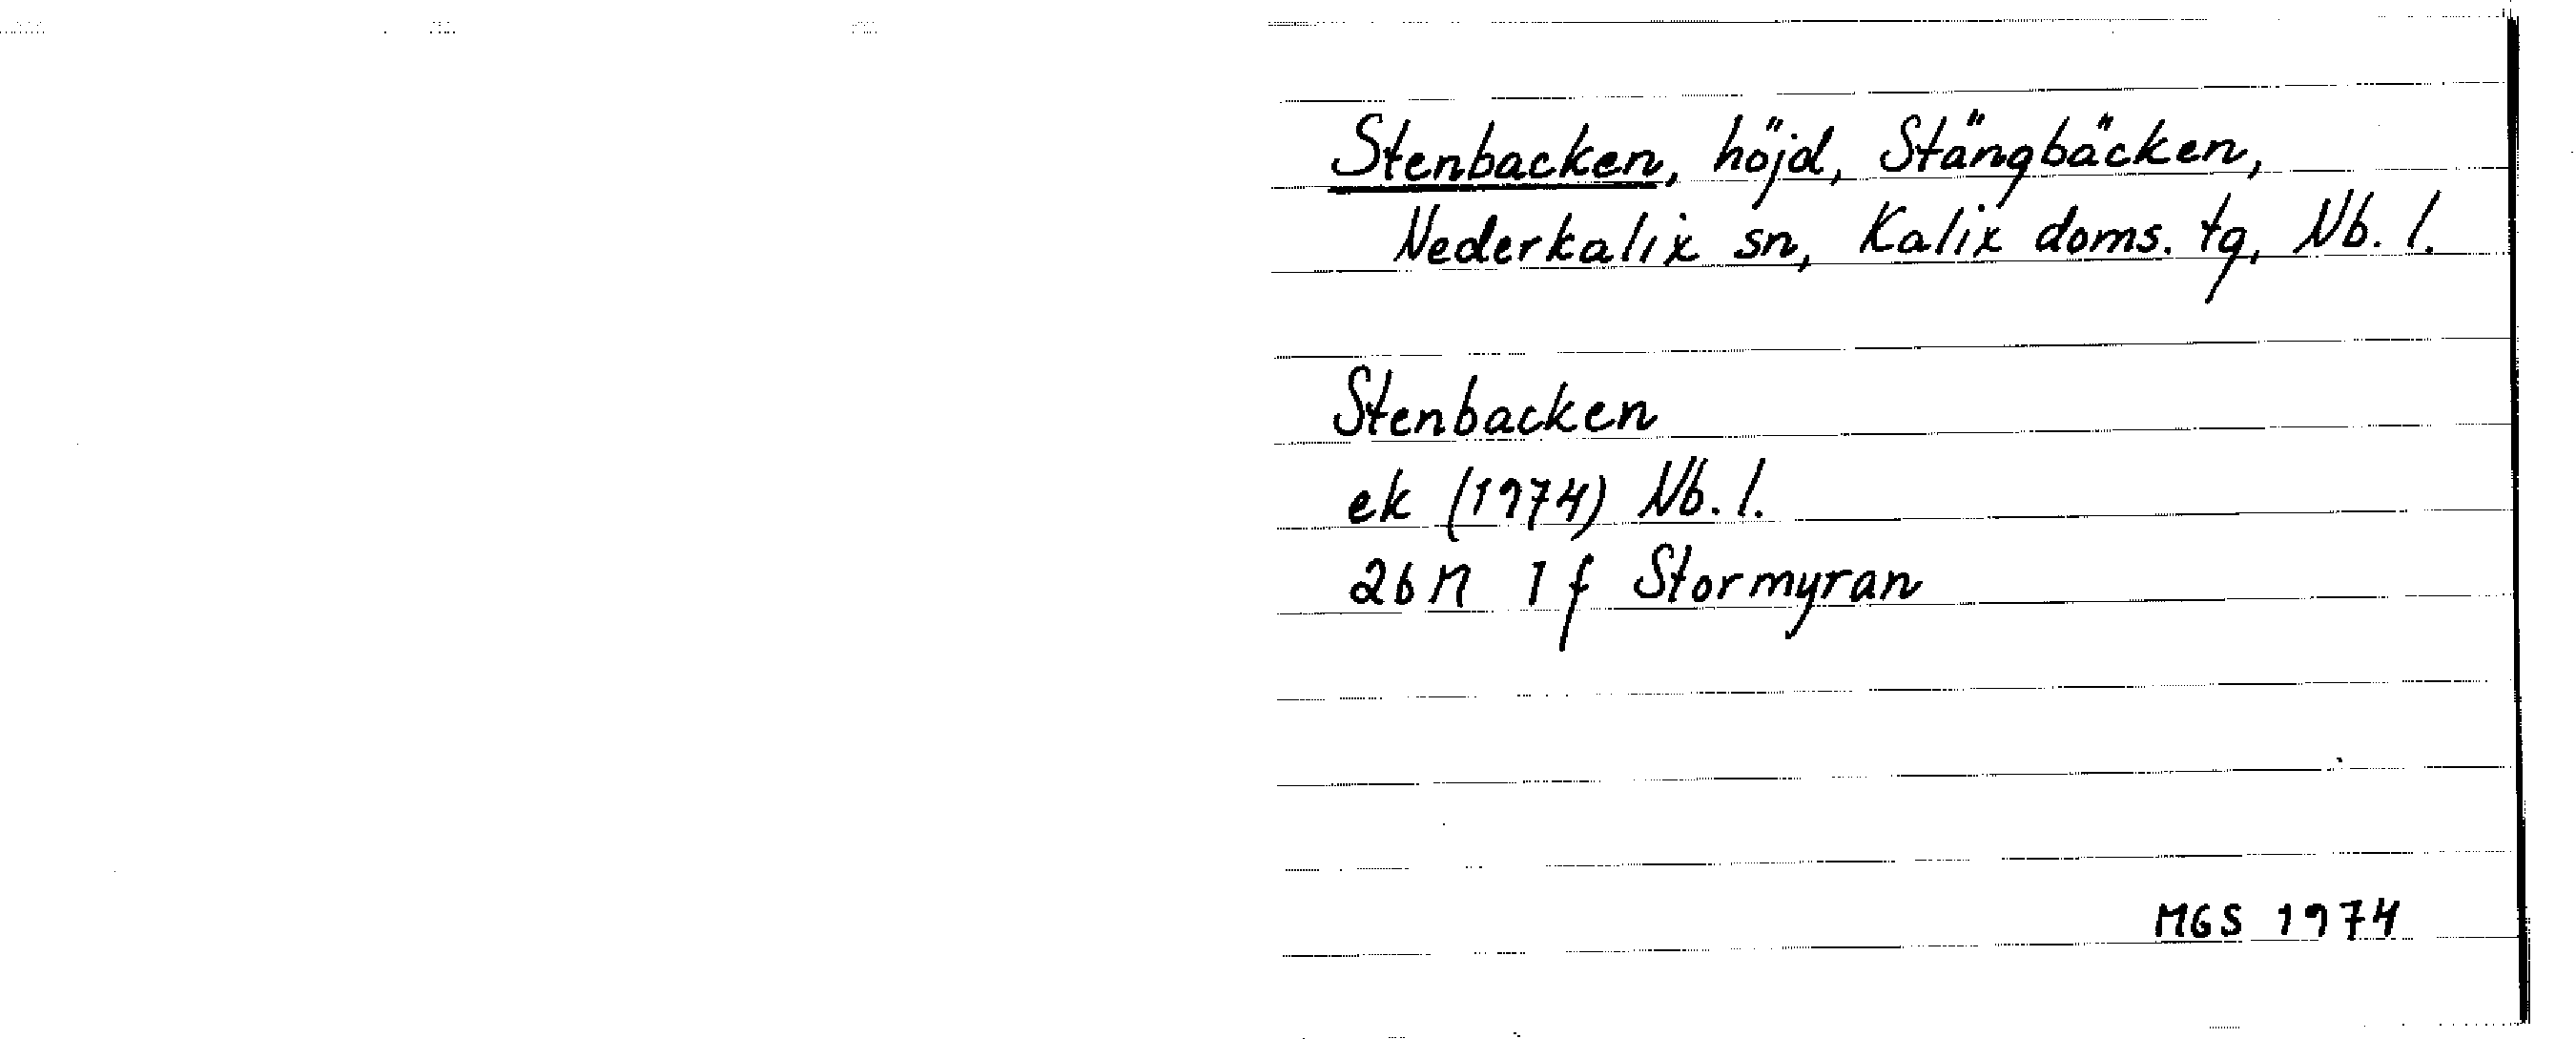 Stenbacken, höjd, Stängbäcken,
Nederkalix sn, Kalix doms. tg, Nb. l.
Stenbacken
ek (1974) Nb. l.
26 M 1 f Stormyran
MGS 1974